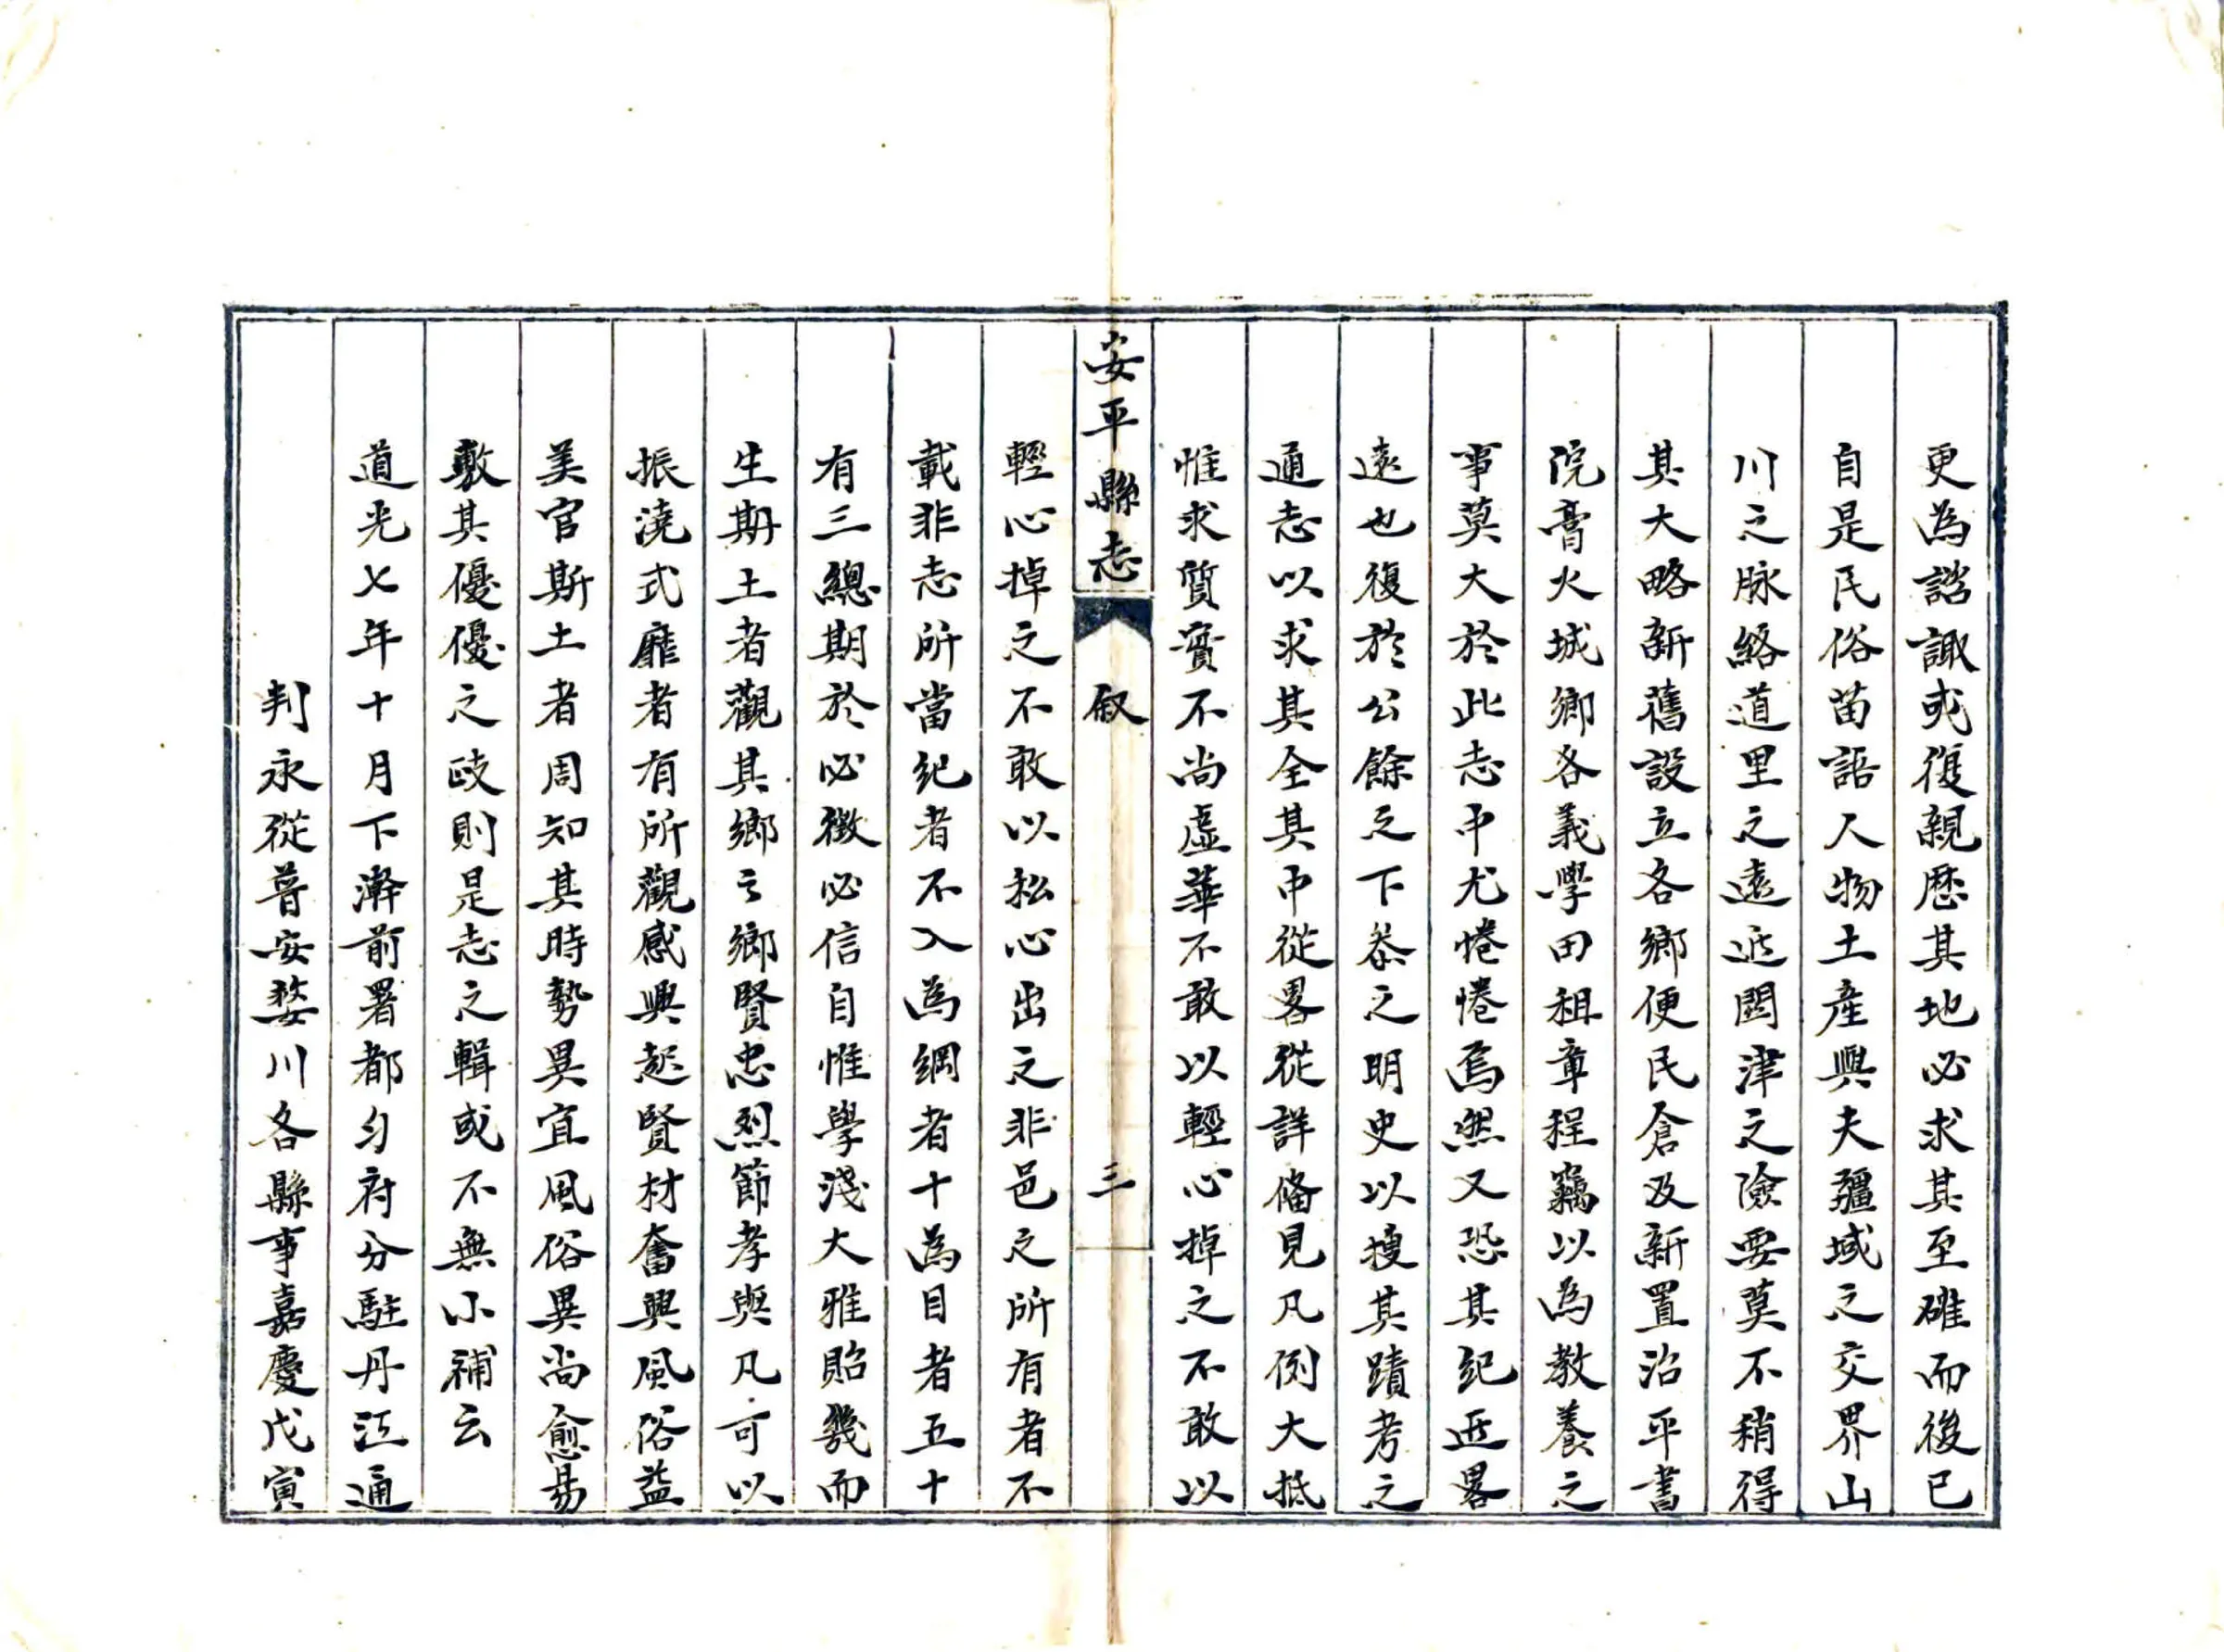 更為諮諏或復親歷其地必求其至確而後已
自是民俗苗語人物土產與夫疆域之交界山
川之脉絡道里之遠近關津之險要莫不稍得
其大略新舊設立各鄉便民倉及新置治平書
院膏火城鄉各義學田租章程竊以為教養之
事莫大於此志中尤惓惓焉然又恐其紀近畧
遠也復於公餘之下叅之明史以搜其蹟考之
通志以求其全其中從畧從詳備見凡例大抵
惟求質實不尚虛華不敢以輕心掉之不敢以
安平縣志
叙
三
輕心掉之不敢以私心出之非邑之所有者不
載非志所當紀者不入為綱者十為目者五十
有三總期於必徵必信自惟學淺大雅貽譏而
生期土者觀其鄉之鄉賢忠烈節孝與凡可以
振澆式靡者有所觀感興起賢材奮興風俗益
美官斯土者周知其時勢異宜風俗異尚愈易
敷其優優之政則是志之輯或不無小補云
道光七年十月下澣前署都勻府分駐丹江通
判永從普安婺川各縣事嘉慶戊寅